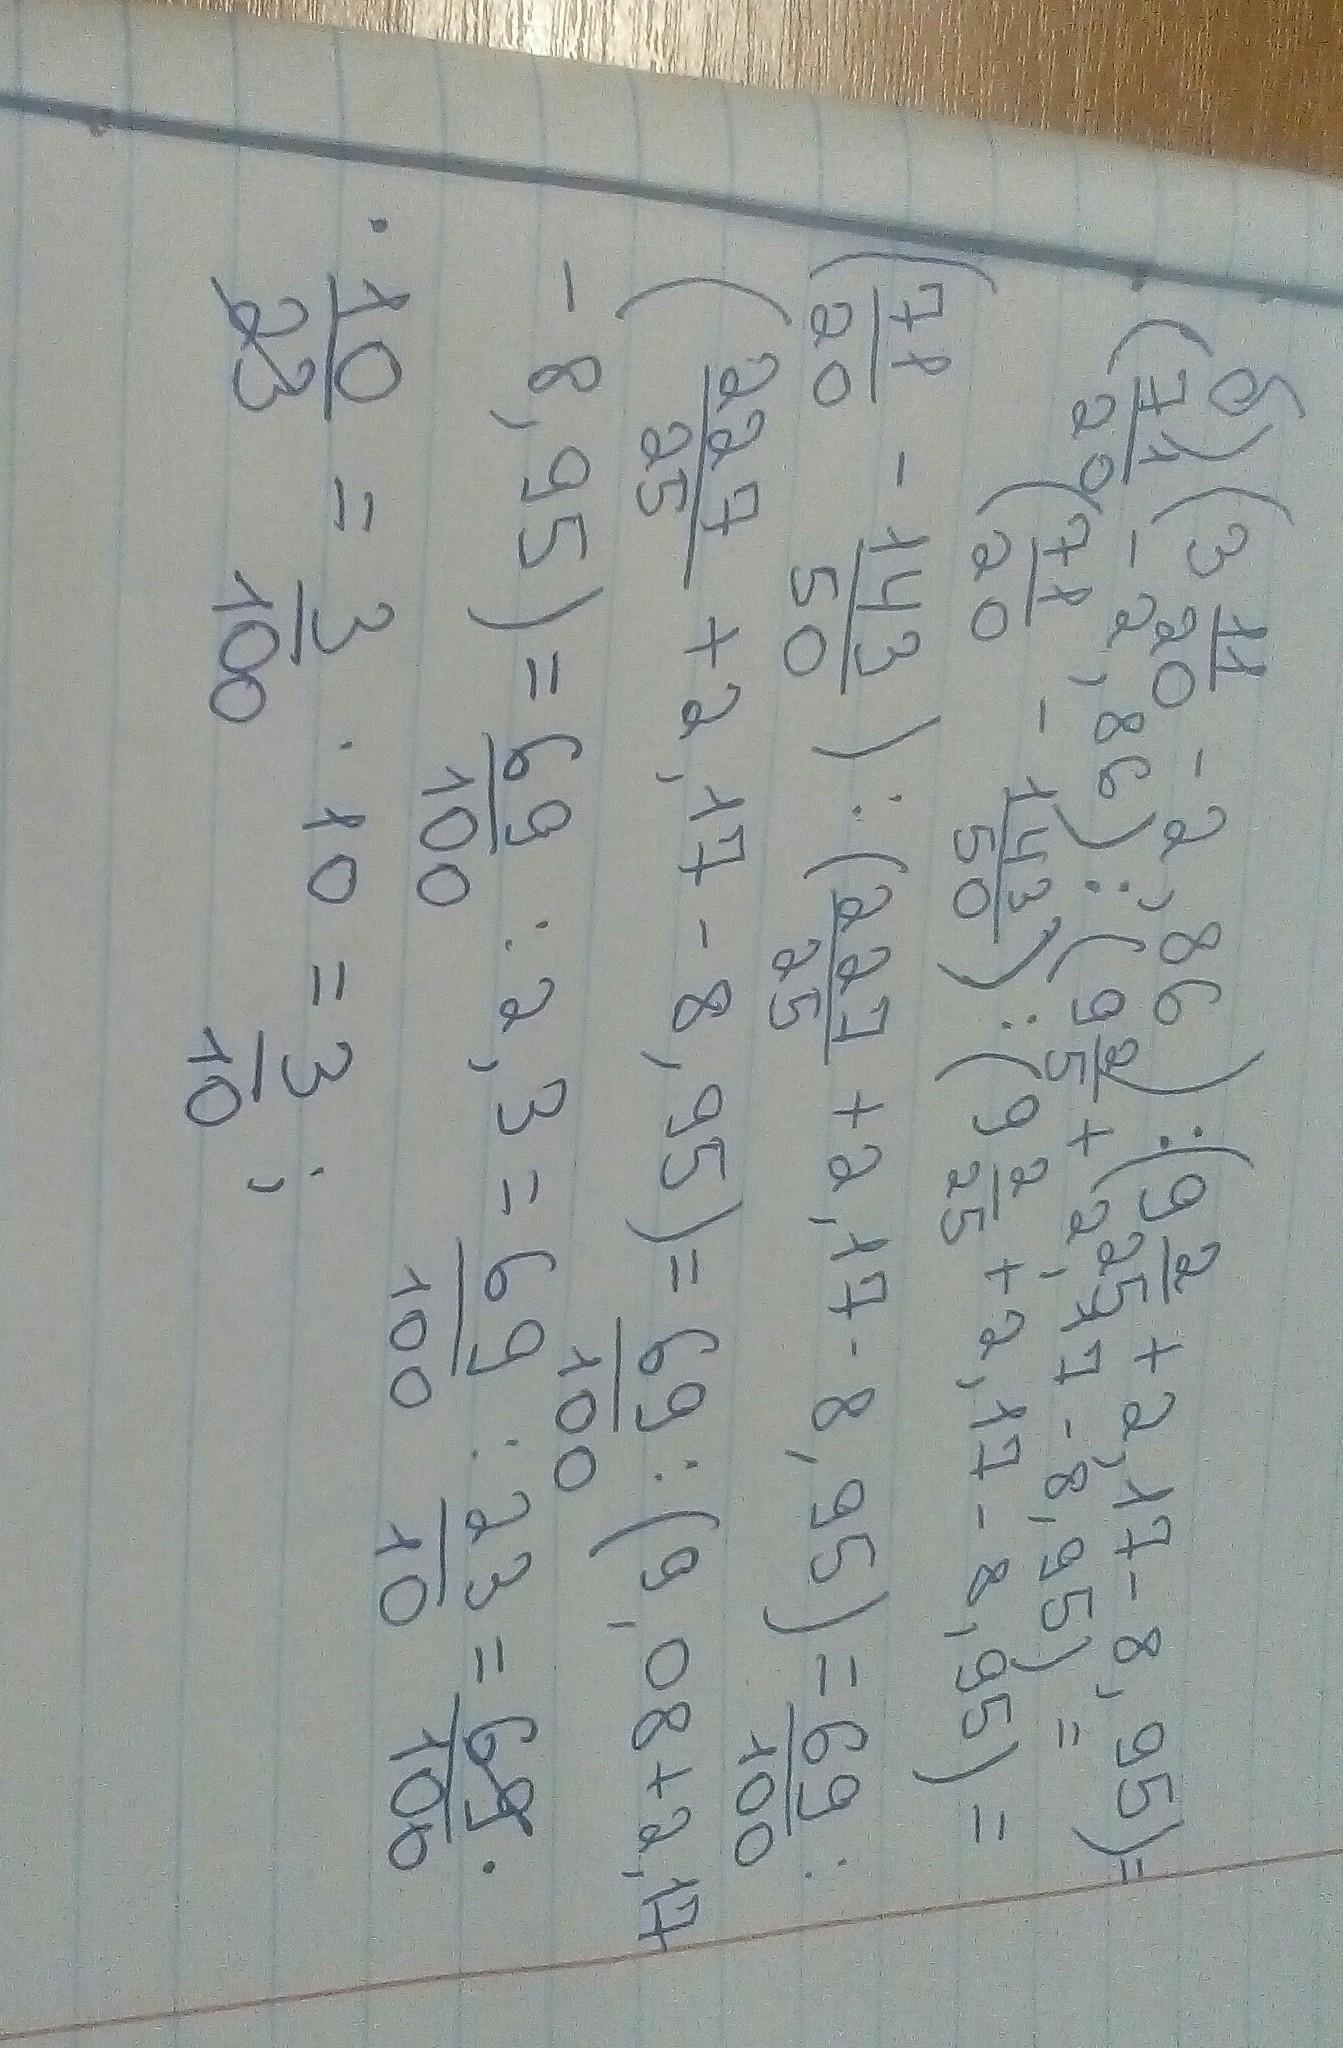 б) (3 11/20 - 2,86) : (9 2/25 + 2,17 - 8,95) =
(71/20 - 2,86) : (9 2/5 + 2,17 - 8,95) =
(71/20 - 143/50) : (9 2/25 + 2,17 - 8,95) =
(71/20 - 143/50) : (227/25 + 2,17 - 8,95) = 69/100 :
(227/25 + 2,17 - 8,95) = 69/100 : (9,08 + 2,17
- 8,95) = 69/100 : 2,3 = 69/100 : 23/10 = 69/100 ·
· 10/23 = 3/100 · 10 = 3/10 ;